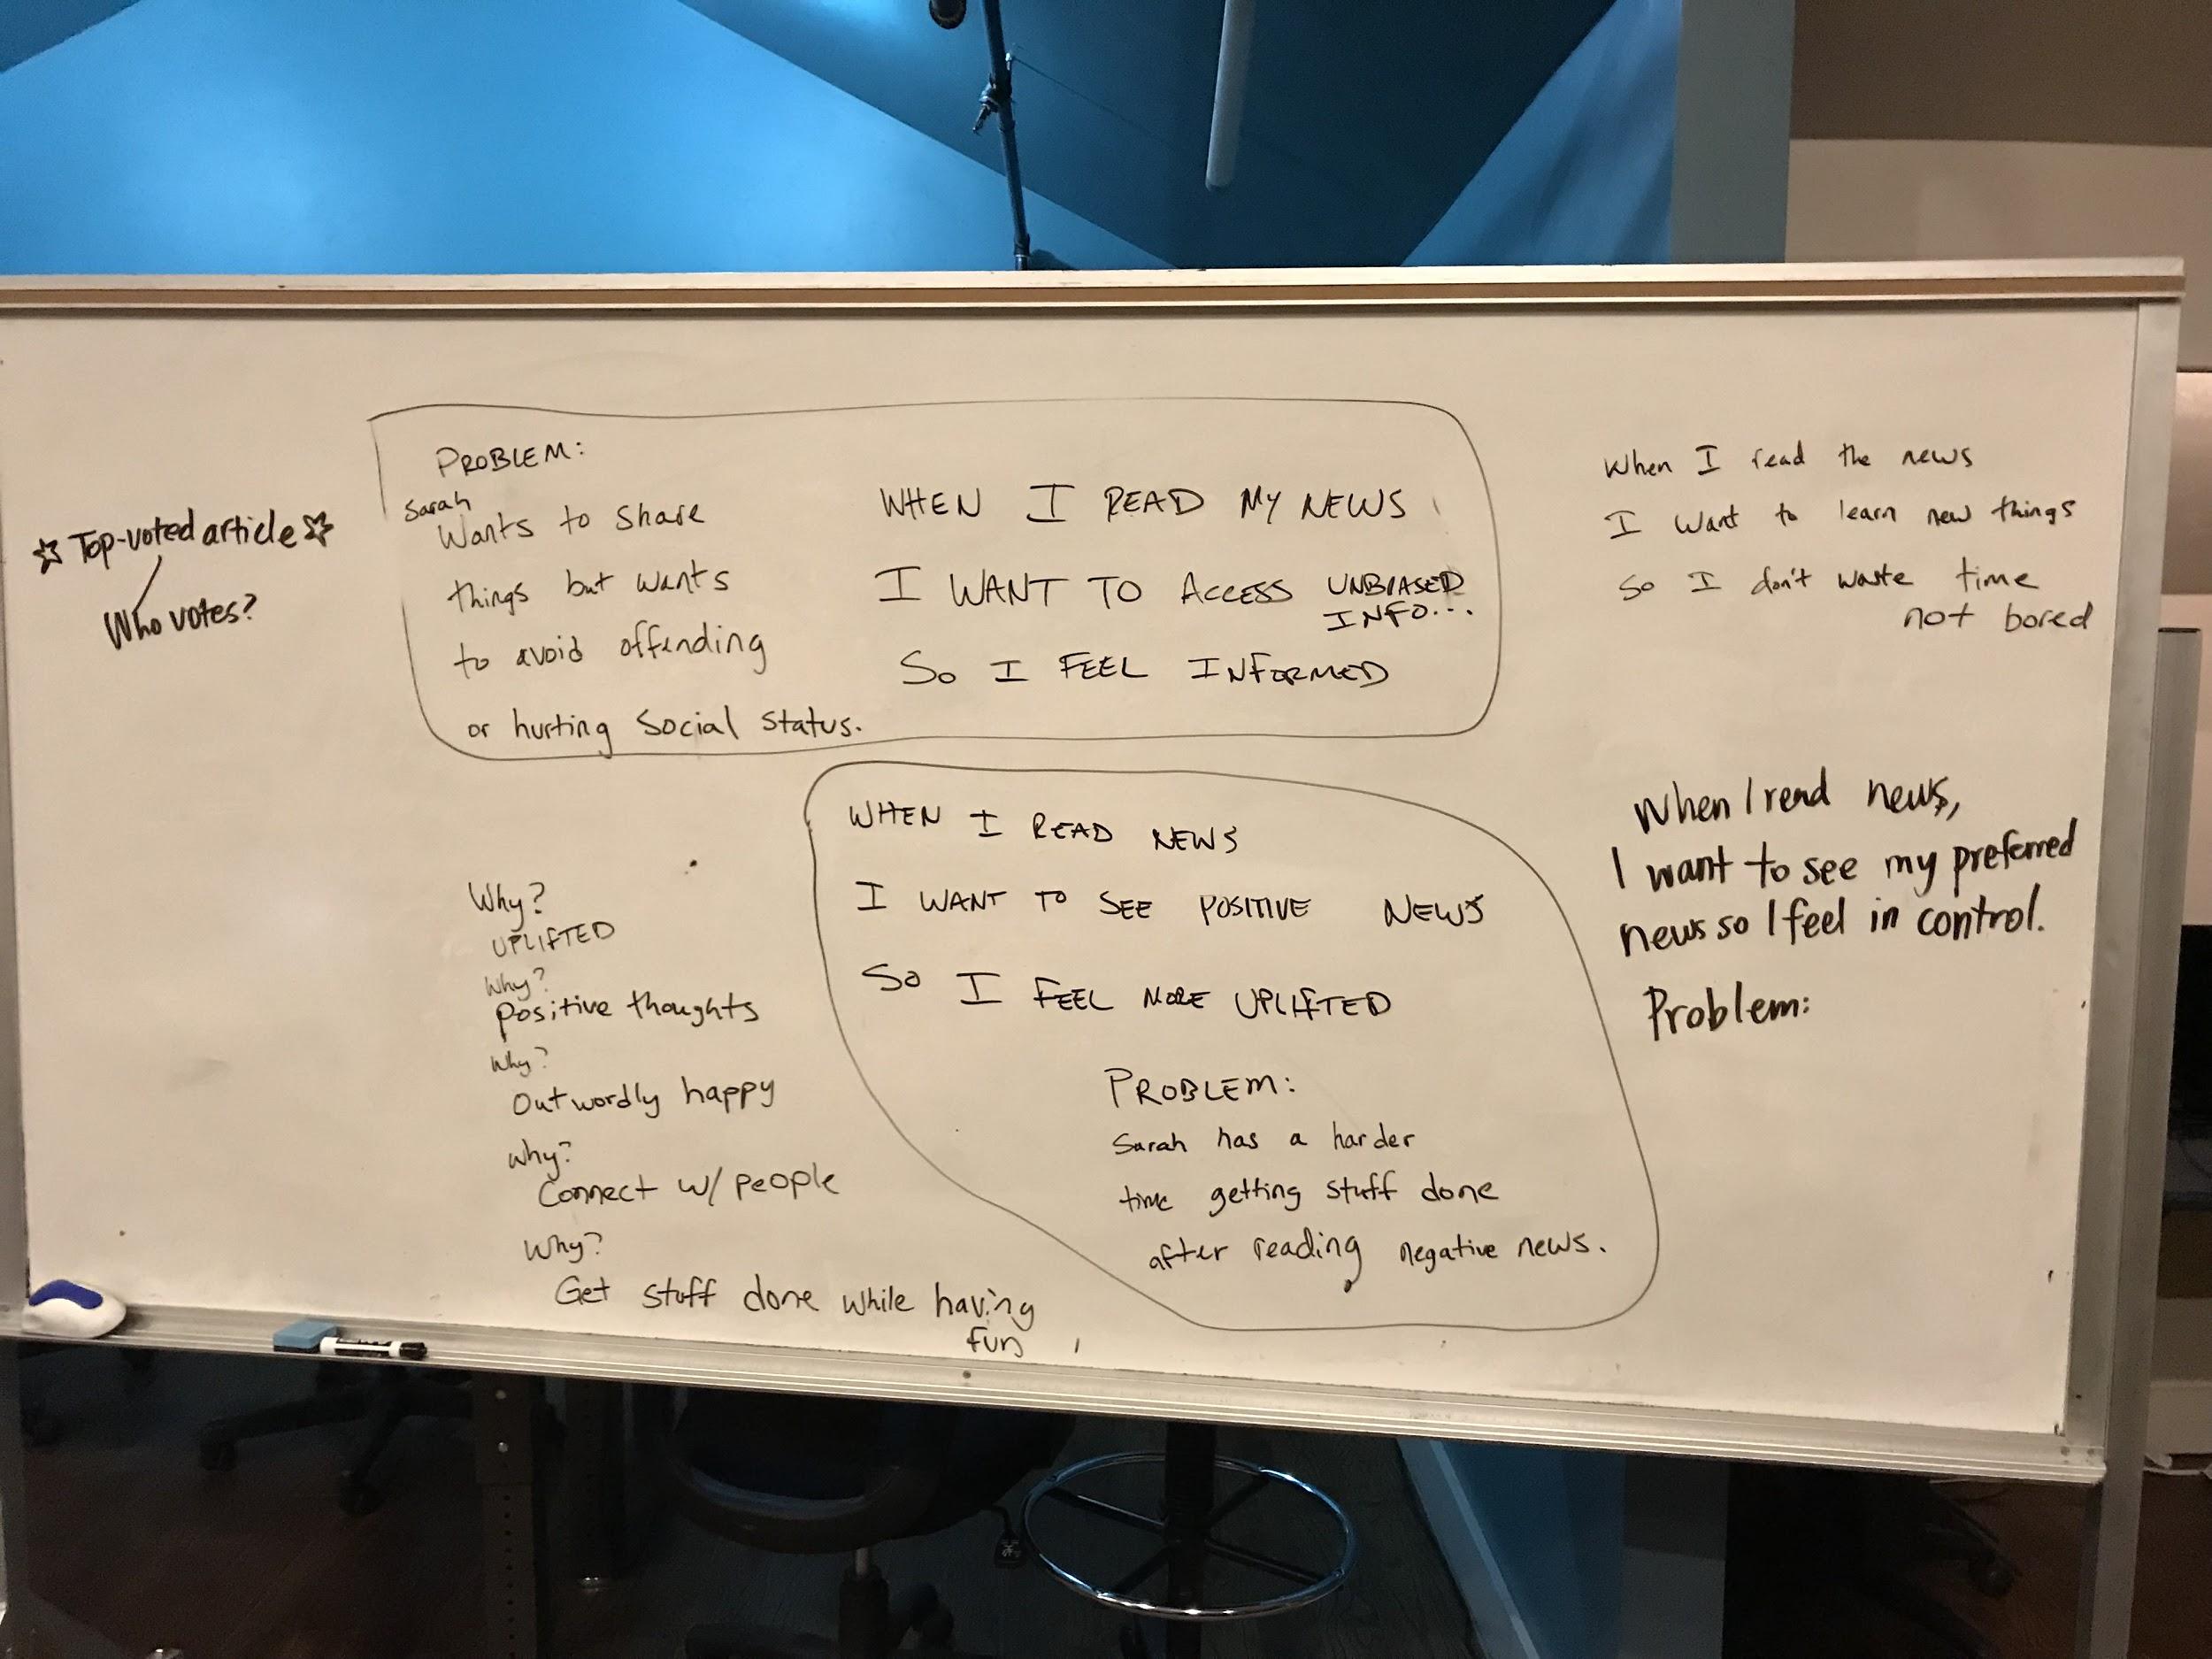 ☆ Top-voted article ☆
Who votes?
PROBLEM:
Sarah
Wants to share
things but wants
to avoid offending
or hurting social status.
WHEN I READ MY NEWS
I WANT TO ACCESS UNBIASED
INFO...
SO I FEEL INFORMED
When I read the news
I want to learn new things
so I don't waste time
not bored
WHEN I READ NEWS
I WANT TO SEE POSITIVE NEWS
SO I FEEL MORE UPLIFTED
PROBLEM:
Sarah has a harder
time getting stuff done
after reading negative news.
Why?
UPLIFTED
Why?
positive thoughts
Why?
Outwordly happy
Why?
Connect w/ people
Why?
Get stuff done while having
fun
When I read news,
I want to see my preferred
news so I feel in control.
Problem: